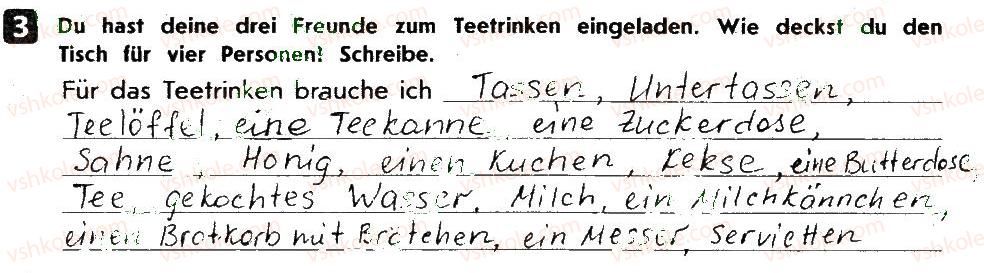 3 Du hast deine drei Freunde zum Teetrinken eingeladen. Wie deckst du den
Tisch für vier Personen? Schreibe.
Für das Teetrinken brauche ich Tassen, Untertassen,
Teelöffel, eine Teekanne, eine Zuckerdose,
Sahne, Honig, einen Kuchen, Kekse, eine Butterdose,
Tee, gekochtes Wasser, Milch, ein Milchkännchen,
einen Brotkorb mit Brötchen, ein Messer, Servietten